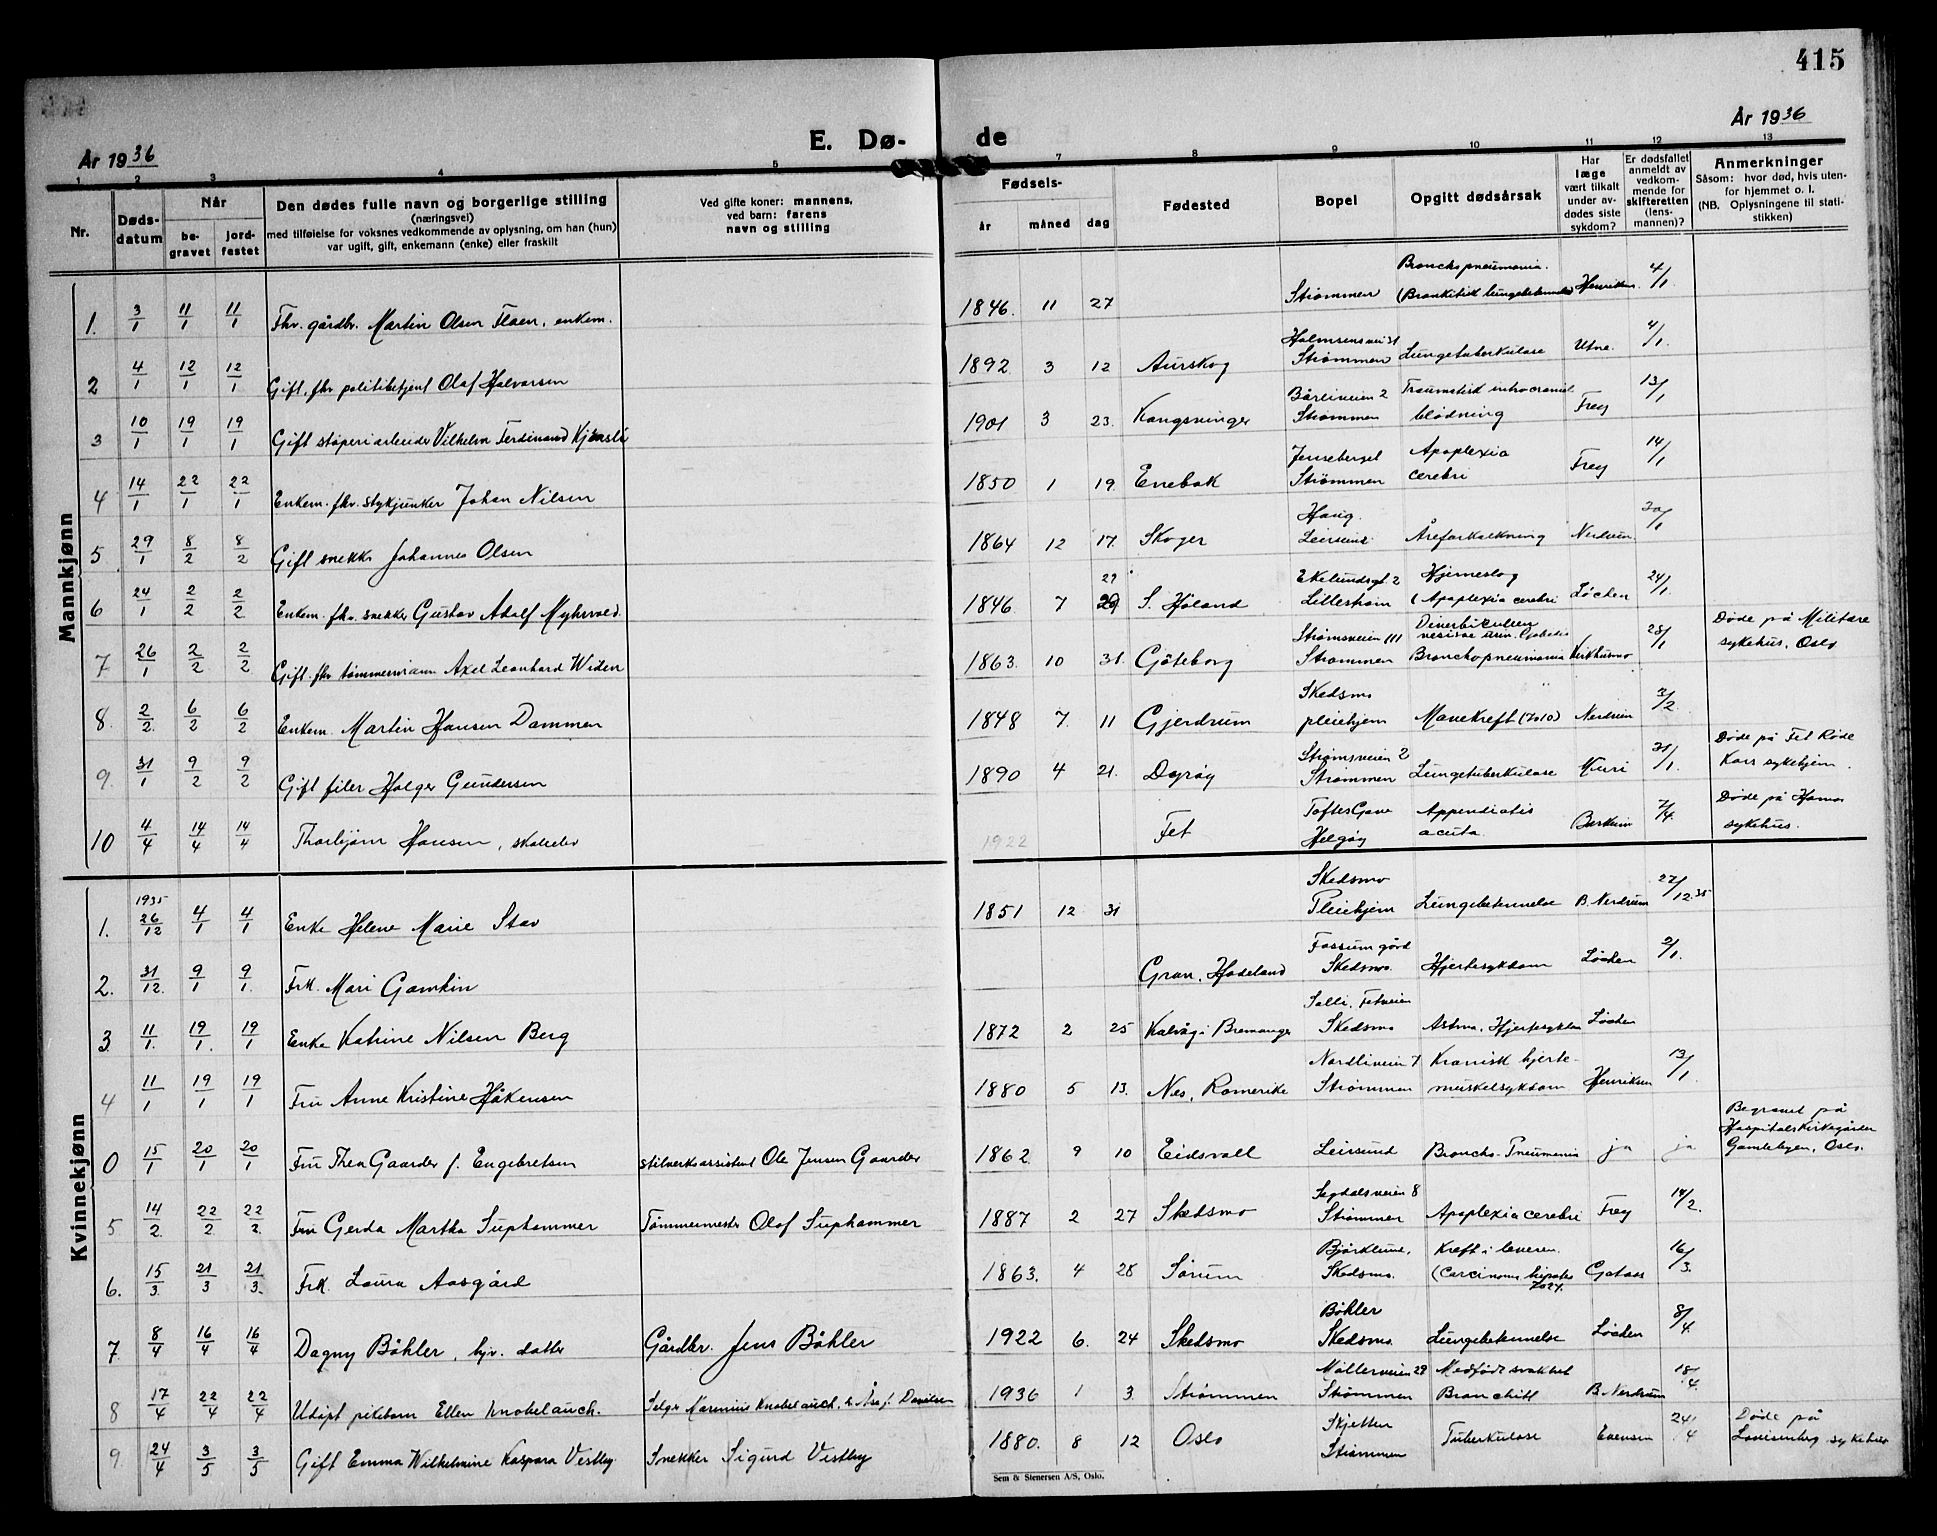 415
År 1936
E. Dø-
de
År 1936
1 2 3 4 5 7 8 9 10 11 12 13
Nr.
Døds-
datum
Når
be-
gravet
jord-
festet
Den dødes fulle navn og borgerlige stilling
(næringsvei)
med tilføielse for voksnes vedkommende av oplysning, om han (hun)
var ugift, gift, enkemann (enke) eller fraskilt
Ved gifte koner: mannens,
ved barn: farens
navn og stilling
Fødsels-
år måned dag
Fødested
Bopel
Opgitt dødsårsak
Har
læge
vært tilkalt
under av-
dødes siste
sykdom?
Er dødsfallet
anmeldt av
vedkom-
mende for
skifteretten
(lens-
mannen)?
Anmerkninger
Såsom: hvor død, hvis uten-
for hjemmet o. l.
(NB. Oplysningene til stati-
stikken)
Mannkjønn
1. 3/1 11/1 11/1 Fhv. gårdbr. Martin Olsen Floen, enkem. 1846. 11 27 Strømmen Bronchopneumonia. Henriksen 4/1
2 4/1 12/1 12/1 Gift, fhv politibetjent Olaf Halvorsen 1892 3 12 Aurskog Holmsensvei 31 Strømmen Lungetuberkulose Utne 4/1.
3 10/1 19/1 19/1 Gift støperiarbeider Vilhelm Ferdinand 1901 3 23. Kongsvinger Bårliveien 2 Strømmen Traumatisk intracraniel blødning Frey 13/1
4 14/1 22/1 22/1 Enkem. fhv. stykjunker Johan Nilsen 1850 1 19. Enebak Strømmen Apoplexia cerebri Frey 14/1
5 29/1 8/2 8/2 Gift snekker Johannes Olsen 1864 12 17. Skoger Haug. Leirsund Åreforkalkning Nerdrum 30/1
6 24/1 2/2 2/2 Enkem. fhv. snekker Gustav Adolf Myhrvold 1846 7 29 S. Høland Ekelundsgt. 2 Lillestrøm Hjerneslag (Apoplexia cerebri Løchen 24/1
7 26/1 2/2 2/2 Gift. fhv tømmermann Axel Leonhard Widen 1863. 10 31. Göteborg Strømsveien 111 Strømmen Bronchopneumonia 28/1 Døde på Militære sykehus, Oslo
8. 2/2 6/2 6/2 Enkem. Martin Hansen Dammen 1848 7. 11 Gjerdrum Skedsmo pleiehjem Mavekreft Nerdrum 3/2
9. 31/1 9/2 9/2 Gift filer Holger Gundersen 1890 4 21. Dypvåg Strømsveien 2 Strømmen Lungetuberkulose Muri 31/1. Døde på Fet Røde Kors sykehjem.
10 4/4 14/4 14/4 Thorbjørn Hansen, skoleelev 1922 Fet Toftes Gave Helgøy Appendicitis acuta. 7/4. Døde på Hamar sykehus.
Kvinnekjønn
1. 1935 26/12 4/1 4/1 Enke Helene Marie Stav 1851 12 31 Skedsmo Pleiehjem Lungebetennelse B. Nerdrum 27/12 35
2. 31/12. 9/1 9/1. Frk. Mari Gamkin Gran, Hadeland Fossum gård Skedsmo. Hjertesykdom Løchen 2/1.
3. 11/1. 19/1. 19/1 Enke Katrine Nilsen Berg 1872 2 25 Kalvåg i Bremanger Salli, Fetveien Skedsmo Astma, Hjertesykdom Løchen
4 11/1 19/1 19/1 Fru Anne Kristine Håkensen 1880 5 13. Nes, Romerike Nordliveien 7 Strømmen Kronisk hjerte- muskelsykdom Henriksen 13/1
0 15/1 20/1 20/1 Fru Thea Gaarder f. Engebretsen stilverksassistent Ole Jensen Gaarder 1862 9 10 Eidsvoll Leirsund Broncho-Pneumonia ja ja Begravet på Hospitalskirkegården Gamlebyen, Oslo.
5 14/2. 22/2. 22/2. Fru Gerda Martha Suphammer Tømmermester Olaf Suphammer 1887 2 27 Skedsmo Sagdalsveien 8 Strømmen Apoplexia cerebri Frey 14/2.
6. 15/3 21/3 21/3. Frk. Laura Aasgård 1863. 4 28 Sørum Bjørklund, Skedsmo. Kreft i leveren. (Carcinoma hepatis Gataas 16/3.
7 8/4 16/4 16/4 Dagny Bøhler, hjv. datter Gårdbr. Jens Bøhler 1922 6. 24 Skedsmo Bøhler Skedsmo. Lungebetennelse Løchen 8/4.
8 17/4 22/4 22/4 Udøpt pikebarn Ellen Knobelauch. Selger Marenius Knobelauch, & Åsa f. Danielsen 1936 1 3 Strømmen Møllerveien 29 Strømmen Medfødt svakhet Bronchitt B. Nerdrum 18/4.
9. 24/4 3/5 3/5 Gift Emma Wilhelmine Kaspara Vestby. Snekker Sigurd Vestby 1880. 8 12 Oslo Skjetten Strømmen Tuberkulose Evensen 24/4 Døde på Lovisenberg sykehus
Sem & Stenersen A/S, Oslo.